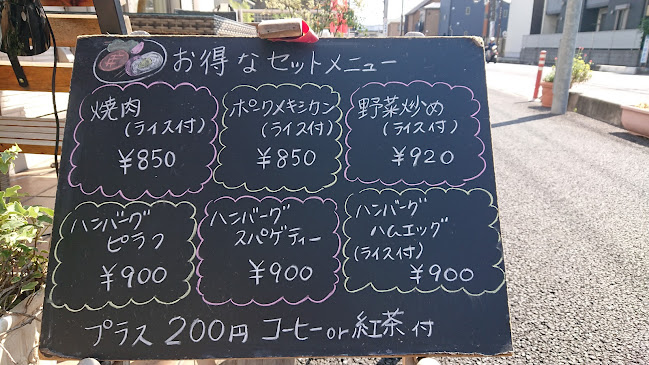 お得なセットメニュー
焼肉
(ライス付)
¥850
ポークメキシカン
(ライス付)
¥850
野菜炒め
(ライス付)
¥920
ハンバーグ
ピラフ
¥900
ハンバーグ
スパゲティー
¥900
ハンバーグ
ハムエッグ
(ライス付)
¥900
プラス 200円 コーヒー or 紅茶 付